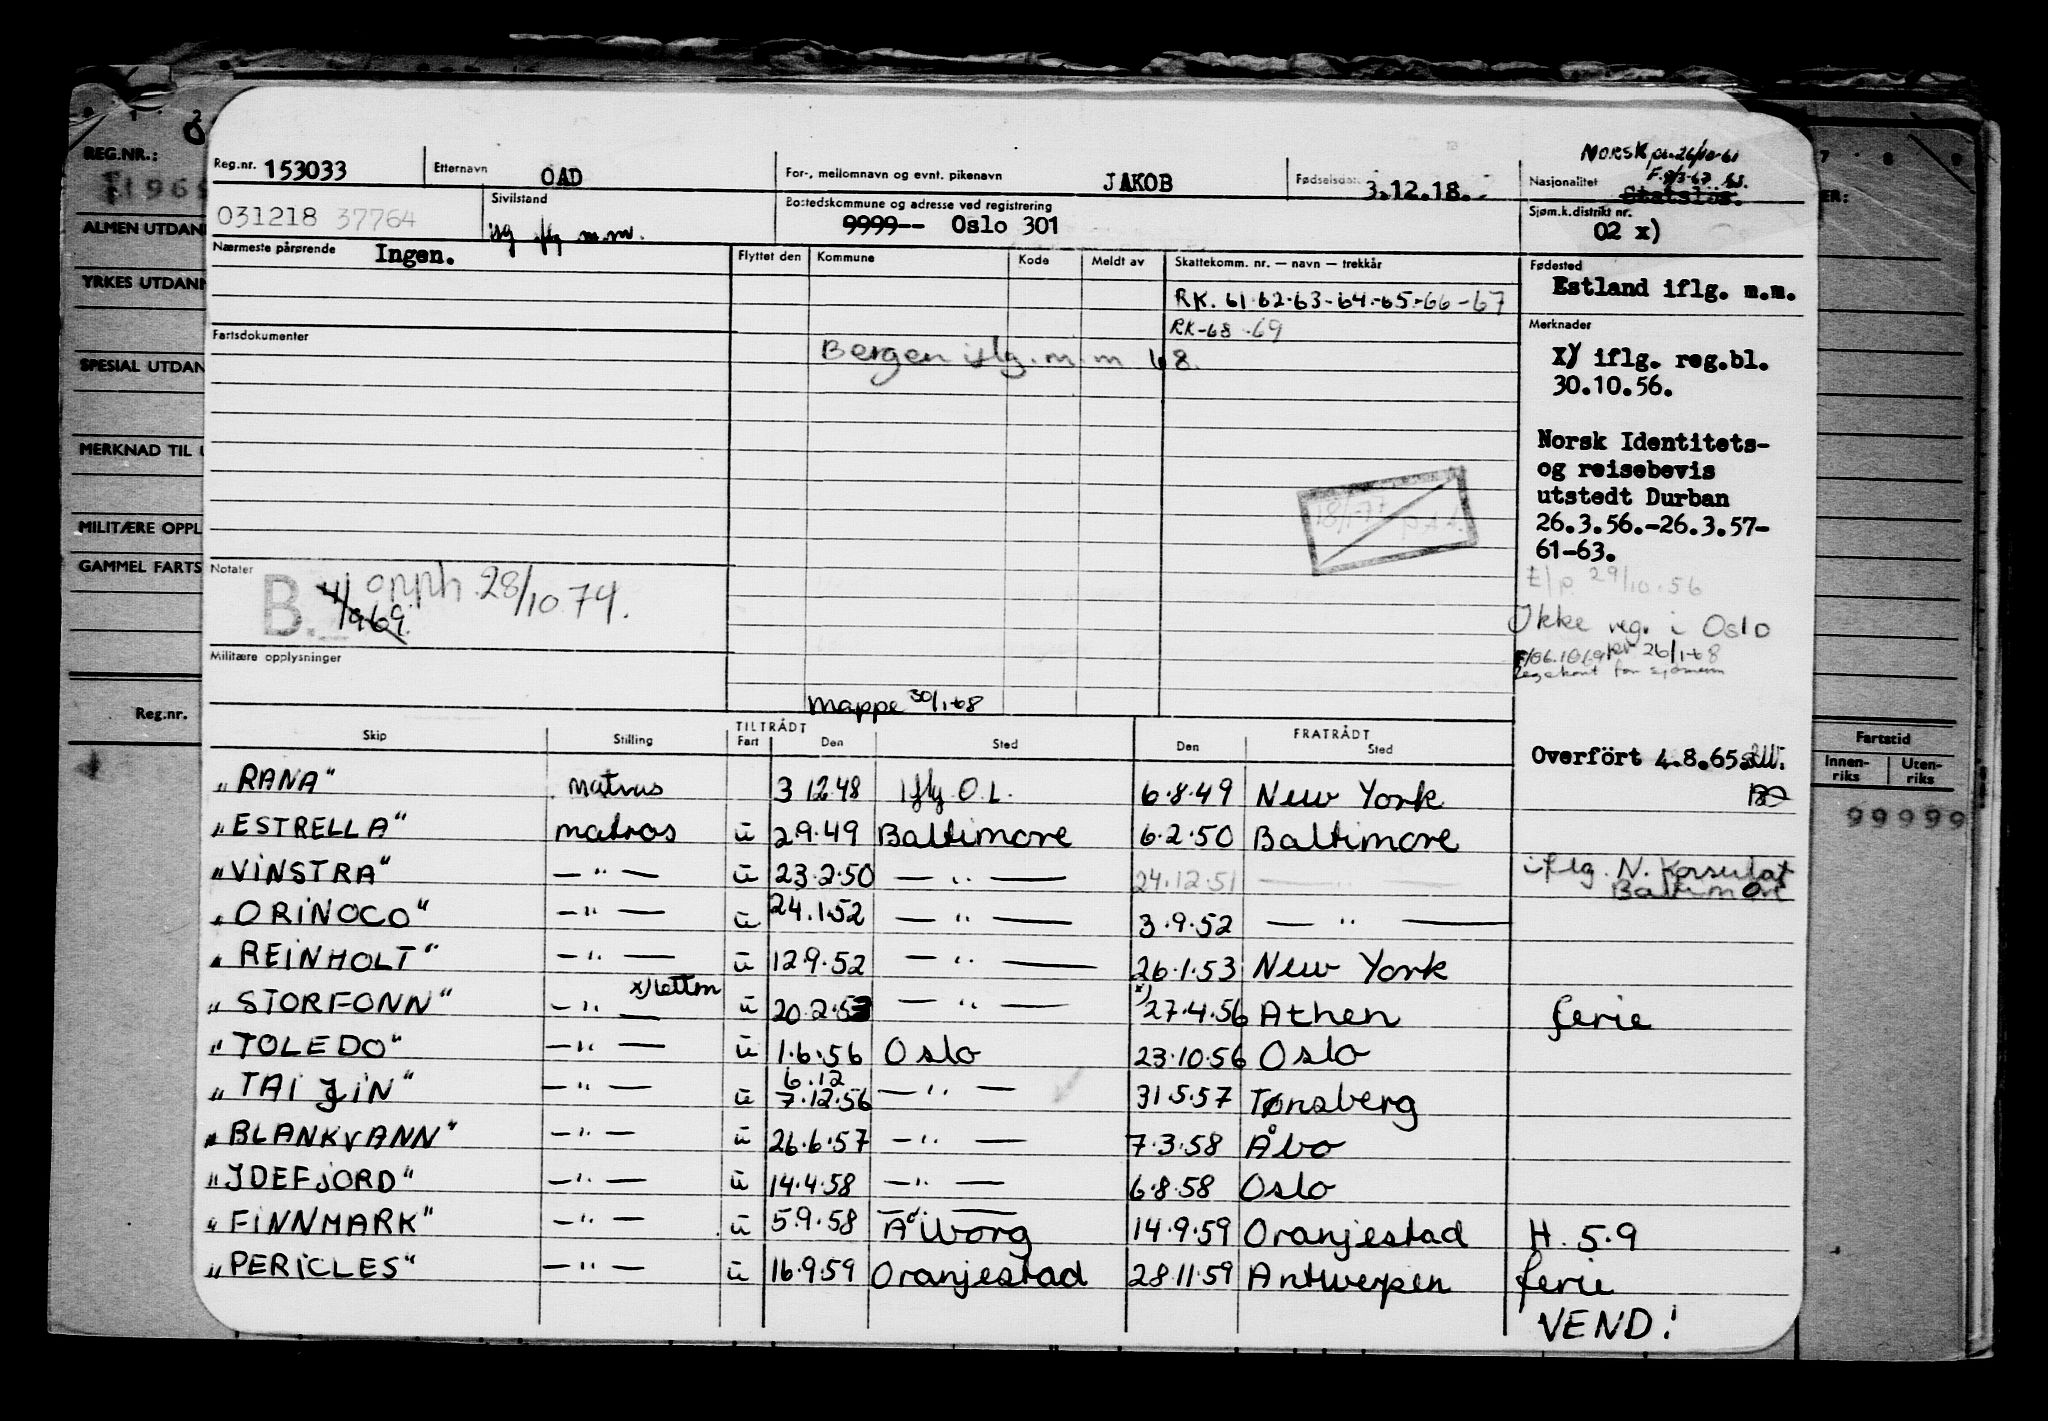 REG.NR.:
ALMEN UTDAN
YRKES UTDANN
SPESIAL UTDAN
MERKNAD TIL U
MILITÆRE OPPL
GAMMEL FARTS
Reg.nr.
Reg.nr. 153033 Etternavn OAD For-, mellomnavn og evnt. pikenavn JAKOB Fødselsdat 3.12.18.
NORSK pr. 26/10-61
Nasjonalitet Statsløs.
031218 37764 Sivilstand
Bostedskommune og adresse ved registrering
9999-- Oslo 301
Sjøm.k.distrikt nr.
02 x)
Nærmeste pårørende Ingen.
Flyttet den Kommune Kode Meldt av Skattekomm. nr. — navn — trekkår
RK. 61-62-63-64-65-66-67
RK-68-69
Bergen iflg. m.m 68.
Fødested
Estland iflg. m.m.
Merknader
x) iflg. reg.bl.
30.10.56.
Norsk Identitets-
og reisebevis
utstedt Durban
26.3.56.-26.3.57-
61-63.
t/p 29/10.56
Ikke reg. i Oslo
pr 26/1-68
Fartsdokumenter
Notater
B. opph. 28/10 74.
Militære opplysninger
Mappe 30/1-68
Overført 4.8.65.
Skip Stilling TILTRÅDT Fart Den Sted FRATRÅDT Den Sted
"RANA" matros 3 12 48 iflg O.L. 6.8.49 New York
"ESTRELLA" matros u 2.9.49 Baltimore 6.2.50 Baltimore
"VINSTRA" — " — u 23.2.50 — " — 24.12.51 — " — iflg. N. Konsulat
Baltimore
"ORINOCO" — " — u 24.1.52 — " — 3.9.52 — " —
"REINHOLT" — " — u 12.9.52 — " — 26.1.53 New York
"STORFONN" — " — x) u 20.2.53 — " — x) 27.4.56 Athen ferie
"TOLEDO" — " — u 1.6.56 Oslo 23.10.56 Oslo
"TAI YIN" — " — u 6.12
7.12.56 — " — 31.5.57 Tønsberg
"BLANKVANN" — " — u 26.6.57 — " — 7.3.58 Åbo
"IDEFJORD" — " — u 14.4.58 — " — 6.8.58 Oslo
"FINNMARK" — " — u 5.9.58 Ålborg 14.9.59 Oranjestad H. 5.9
"PERICLES" — " — u 16.9.59 Oranjestad 28.11.59 Antwerpen ferie
VEND!
Fartstid
Innen-
riks
Uten-
riks
99999